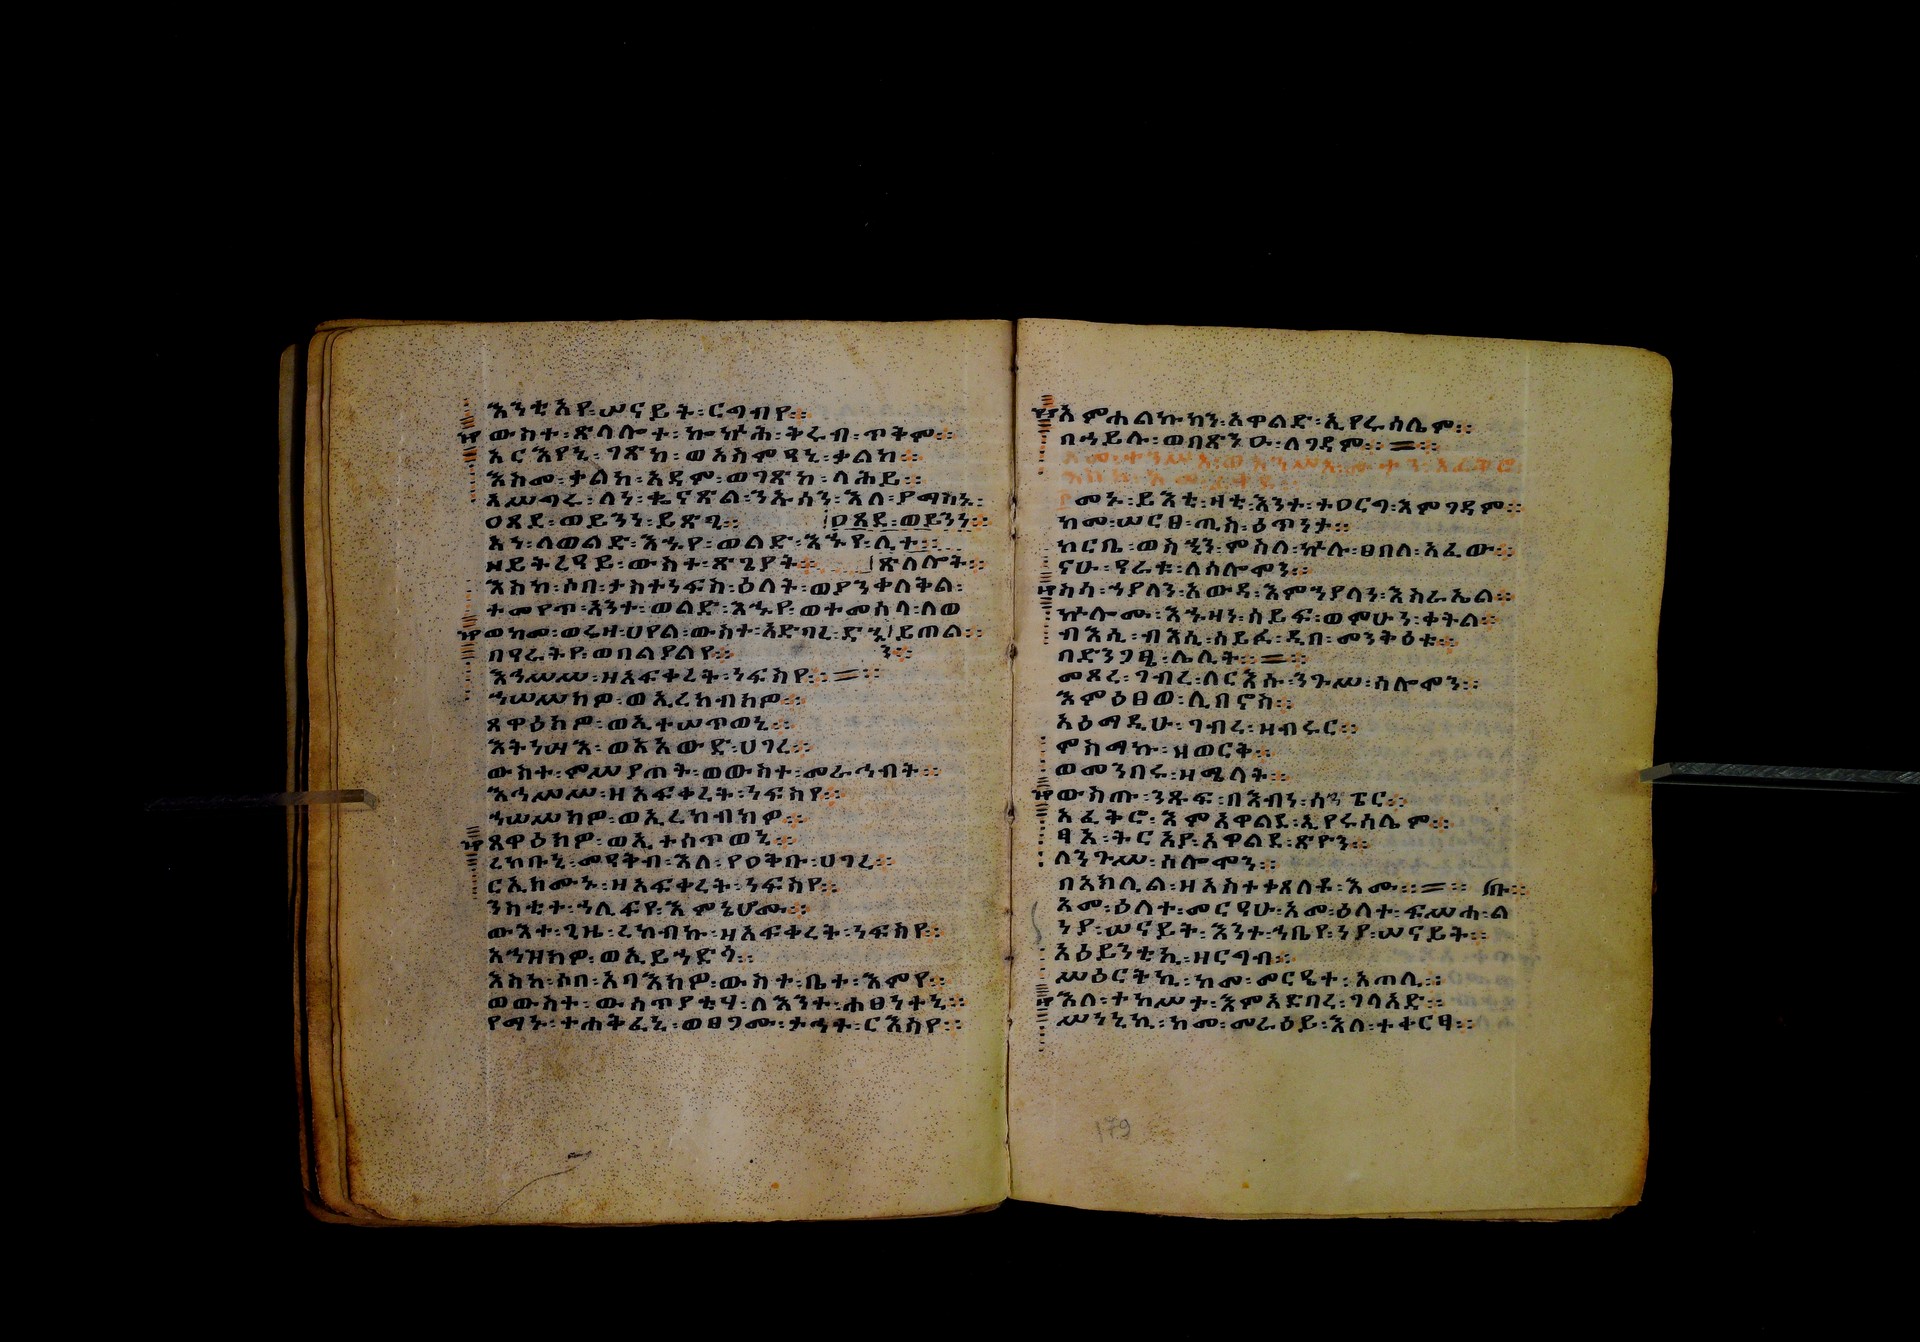 እንቲአየ፡ሠናይት፡ርግብየ።
ውስተ፡ጽላሎተ፡ኰኵሕ፡ትሩብ፡ጥቅም።
አርእየኒ፡ገጽከ፡ወአስምዓኒ፡ቃልከ።
እስመ፡ቃልከ፡አዳም፡ወገጽከ፡ላሕይ።
አሥግሩ፡ለነ፡ቈናጽል፡ንኡሰን፡እለ፡ያማስኑ፡
ዐጸደ፡ወይንነ፡ይጽጊ። ዐጸደ፡ወይንነ።
አነ፡ለወልድ፡እኁየ፡ወልድ፡እኁየ፡ሊተ።
ዘይትረዓይ፡ውስተ፡ጽጌያት። ጽልሎት።
እስከ፡ሶበ፡ታስተነፍስ፡ዕለት፡ወያንቀለቅል፡
ተመየጥ፡አንተ፡ወልድ፡እኁየ፡ወተመሰላ፡ለወ
ወከመ፡ወሬዛ፡ሀየል፡ውስተ፡አድባረ፡ይጠል።
በዓራትየ፡ወበልያልየ።
እኀሠሥ፡ዘአፍቀረት፡ነፍስየ።
ኀሠሥክዎ፡ወኢረከብክዎ።
ጸዋዕክዎ፡ወኢተሠጥወኒ።
እትነሣእ፡ወእአውድ፡ሀገረ።
ውስተ፡ምሥያጠት፡ወውስተ፡መራኅብት።
እኀሠሥ፡ዘአፍቀረት፡ነፍስየ።
ኀሠሥክዎ፡ወኢረከብክዎ።
ጸዋዕክዎ፡ወኢተሰጥወኒ።
ረከቡኒ፡መዓቅብ፡እለ፡የዐቅቡ፡ሀገረ።
ርኢክሙኑ፡ዘአፍቀረት፡ነፍስየ።
ንስቲተ፡ኀሊፍየ፡እምኔሆሙ።
ውእተ፡ጊዜ፡ረከብኩ፡ዘአፍቀረት፡ነፍስየ።
አኀዝክዎ፡ወኢይኀድጎ።
እስከ፡ሶበ፡አባእክዎ፡ውስተ፡ቤተ፡እምየ።
ወውስተ፡ውሳጥያቲሃ፡ለእንተ፡ሐፀነተኒ።
የማኑ፡ተሐቅፈኒ፡ወፀጋሙ፡ታኅተ፡ርእስየ።
አምሐልኩክን፡አዋልድ፡ኢየሩሳሌም።
በኀይሉ፡ወበጽንዑ፡ለገዳም።
መኑ፡ይእቲ፡ዛቲ፡እንተ፡ተዐርግ፡እምገዳም።
ከመ፡ሠርፀ፡ጢስ፡ዕጥንታ።
ከርቤ፡ወስኂን፡ምስለ፡ኵሉ፡ፀበለ፡አፈው።
ናሁ፡ዓራቱ፡ለሰሎሞን።
ስሳ፡ኀያላን፡አውዳ፡እምኀያላን፡እስራኤል።
ኵሎሙ፡እኁዛነ፡ሰይፍ፡ወምሁን፡ቀትል።
ብእሲ፡ብእሲ፡ሰይፉ፡ዲበ፡መንቅዕቱ።
በድንጋፄ፡ሌሊት።
መጾረ፡ገብረ፡ለርእሱ፡ንጉሥ፡ሰሎሞን።
እምዕፀወ፡ሊባኖስ።
አዕማዲሁ፡ገብረ፡ዘብሩር።
ምስማኩ፡ዘወርቅ።
ወመንበሩ፡ዘሜላት።
ውስጡ፡ንጹፍ፡በእብነ፡ሰንፔር።
አፈቅሮ፡እምአዋልደ፡ኢየሩሳሌም።
ፃእ፡ትርአያ፡አዋልደ፡ጽዮን።
ለንጉሥ፡ሰሎሞን።
በአክሊል፡ዘአስተቀጸለቶ፡እሙ።
አመ፡ዕለተ፡መርዓሁ፡አመ፡ዕለተ፡ፍሥሐ፡ል
ነያ፡ሠናይት፡እንተ፡ኀቤየ፡ነያ፡ሠናይት።
አዕይንቲኪ፡ዘርግብ።
ሥዕርትኪ፡ከመ፡መርዔተ፡አጠሊ።
እለ፡ተከሥታ፡እምአድባረ፡ገላአድ።
ሥነኒኪ፡ከመ፡መራዕይ፡እለ፡ተቀርፃ።
179